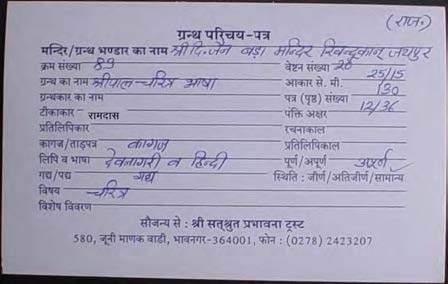 (राज॰)
ग्रन्थ परिचय-पत्र
मन्दिर/ग्रन्थ भण्डार का नाम श्री दि॰ जैन बड़ा मन्दिर जयपुर
क्रम संख्या 89 वेष्टन संख्या 28
ग्रन्थ का नाम श्रीपाल-चरित्र भाषा आकार से. मी. 25/15
ग्रन्थकार का नाम पत्र (पृष्ठ) संख्या 130
टीकाकार रामदास पंक्ति अक्षर 12/36
प्रतिलिपिकार रचनाकाल
कागज/ताड़पत्र कागज प्रतिलिपिकाल
लिपि व भाषा देवनागरी व हिन्दी पूर्ण/अपूर्ण अपूर्ण
गद्य/पद्य गद्य स्थिति : जीर्ण/अतिजीर्ण/सामान्य
विषय चरित्र
विशेष विवरण
सौजन्य से : श्री सत्श्रुत प्रभावना ट्रस्ट
580, जूनी माणक वाडी, भावनगर-364001, फोन : (0278) 2423207